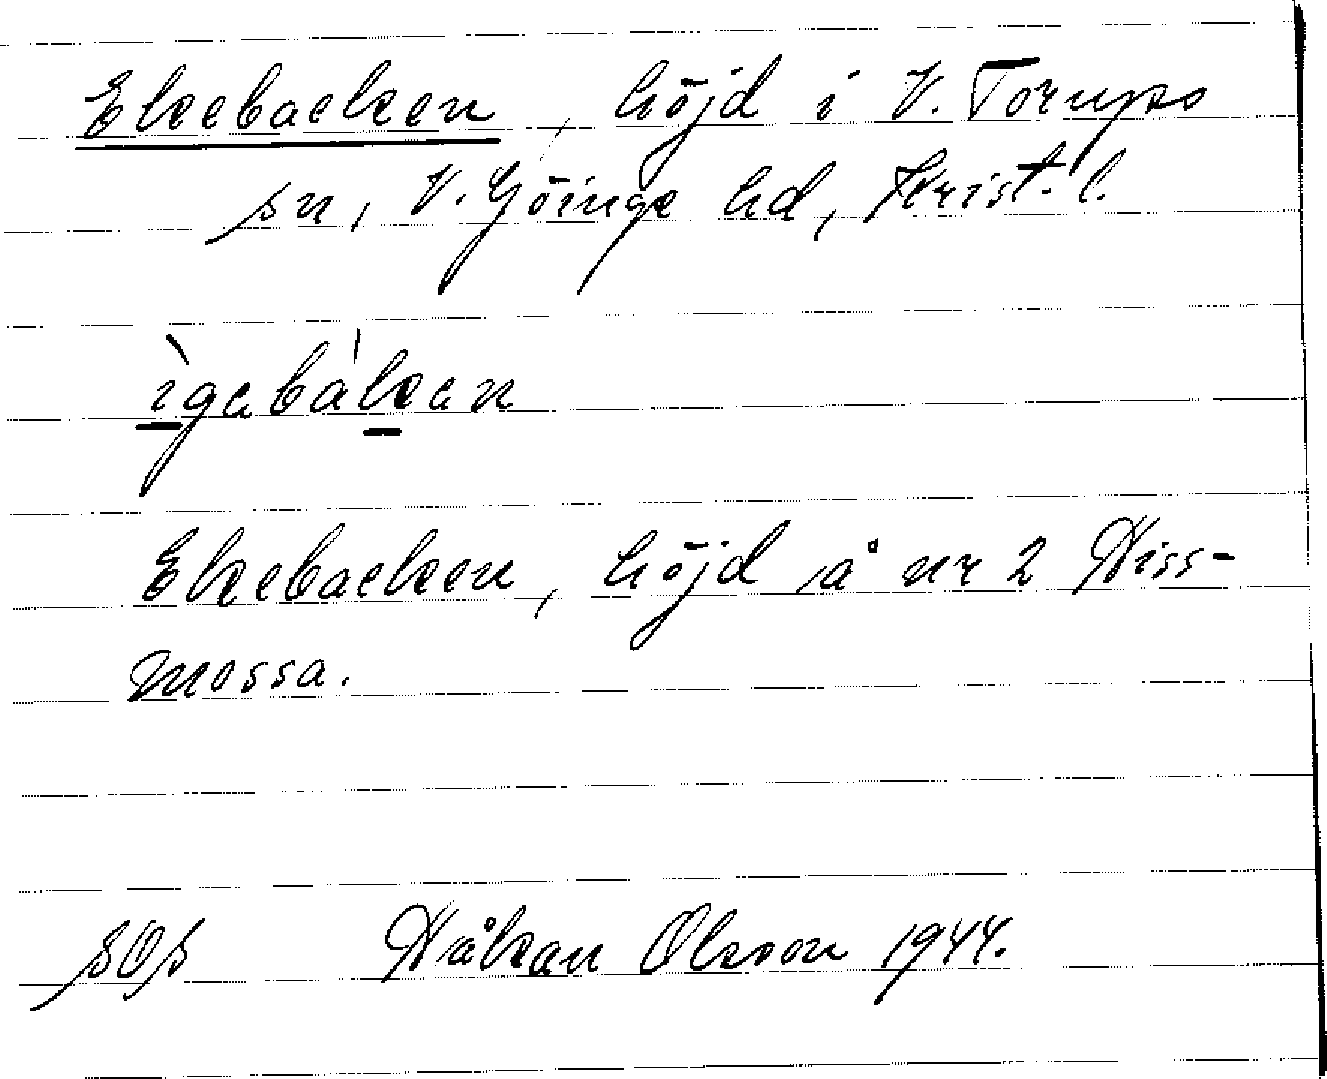 Ekebacken, höjd i V. Torups
sn, V. Göinge hd, Krist. l.
ìgabákan
Ekebacken, höjd å nr 2 Hiss-
mossa.
sOs Håkan Olsson 1944.